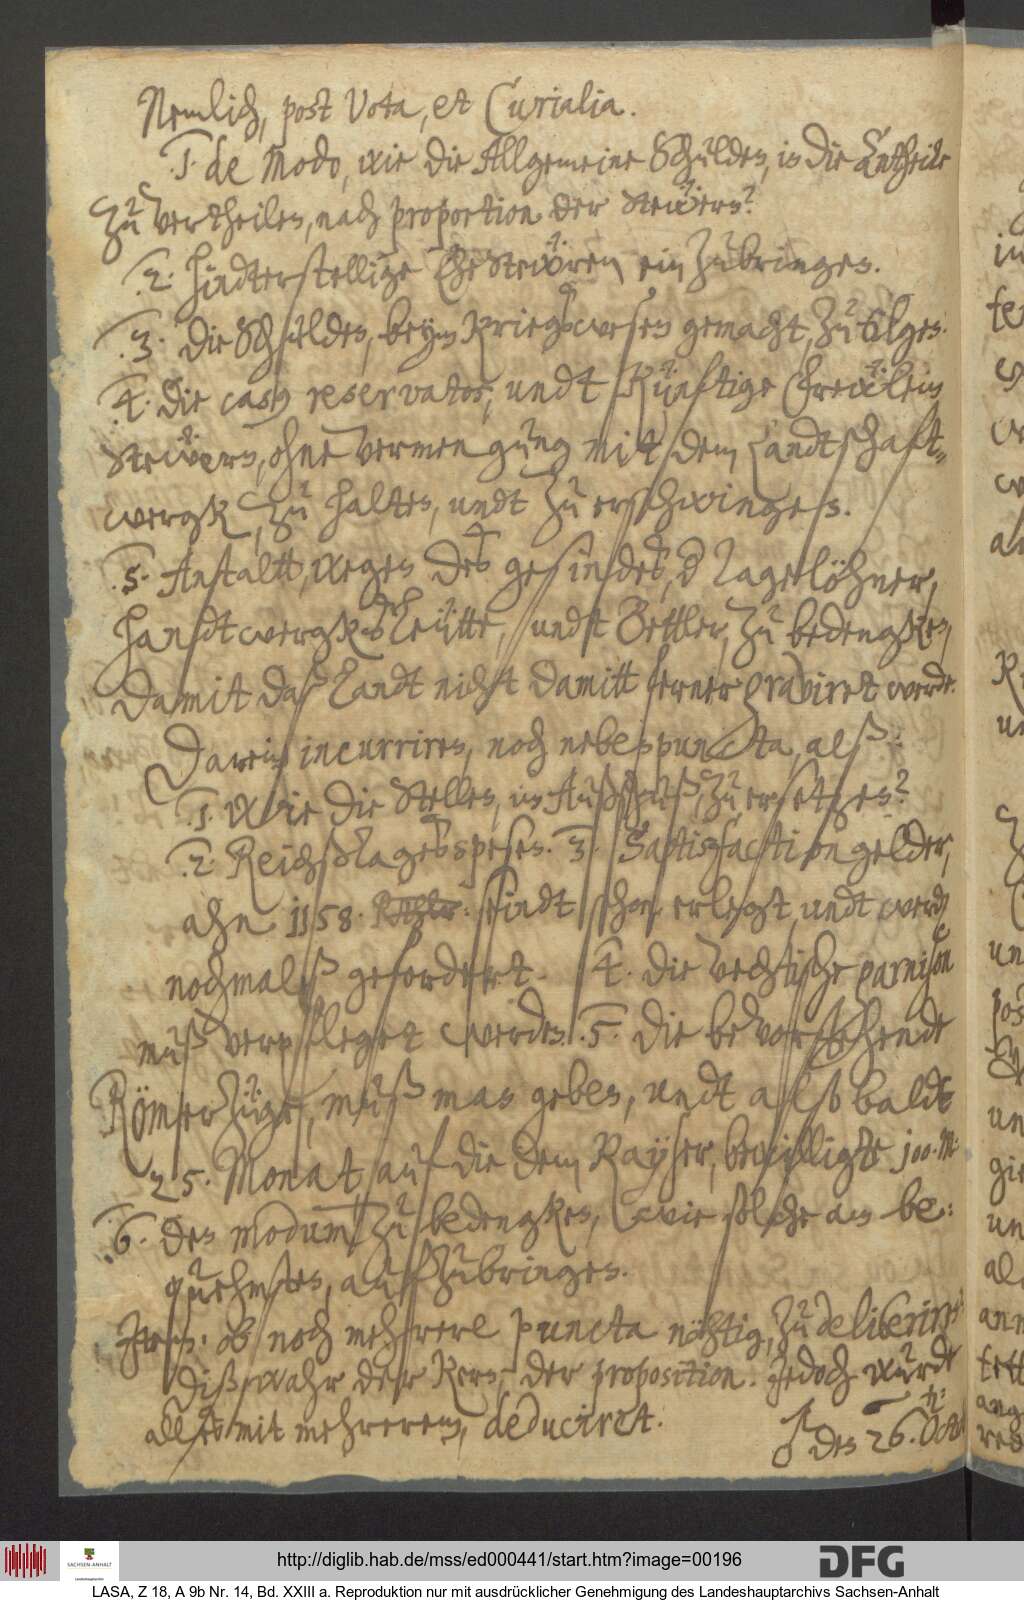 Nemlich, post Vota, et Curialia.
1. de Modo, wie die Allgemeine Schulden, in die Antheile
zu vertheilen, nach proportion der Steüern?
2. hindterstellige Steüren einzubringen.
3. die Schulden, beym Kriegswesen gemacht, zu tilgen.
4. die casq reservatos, undt Künftige Freülein
Steüern, ohne vermengung mit dem Landtschaft-
wergk, zu halten, undt zu erschwingen.
5. Anstaltt, wegen des gesindes, Tagelöhner,
handtwergksLeütte, undt Bettler, zu bedengken,
damit das Landt nicht damitt ferner graviret werde.
Darein incurriren, noch nebenpuncta, alß:
1. Wie die Stellen, im Außschuß, zu ersetzen?
2. Reichßtagesspesen. 3. Satisfaction gelder,
ahn 1158. seindt schon erlegt, undt werden
nochmalß gefordert. 4. die Vechtische garnison
muß verpfleget werden. 5. die bevorstehende
Römerzüge, muß man geben, undt alsobaldt
25. Monat, auf die dem Kayser, bewilligte 100. M:
6. den modum zu bedengken, wie solche am be:
quehmsten, aufzubringen.
Item: ob noch mehrere puncta nöhtig, zu deliberiren?
Diß wahr der Kern, der proposition. Jedoch wurde
alles mit mehrerem, deducirt.
den 26. Octob:
http://diglib.hab.de/mss/ed000441/start.htm?image=00196
DFG
SACHSEN-ANHALT
Landeshauptarchiv
LASA, Z 18, A 9b Nr. 14, Bd. XXIII a. Reproduktion nur mit ausdrücklicher Genehmigung des Landeshauptarchivs Sachsen-Anhalt